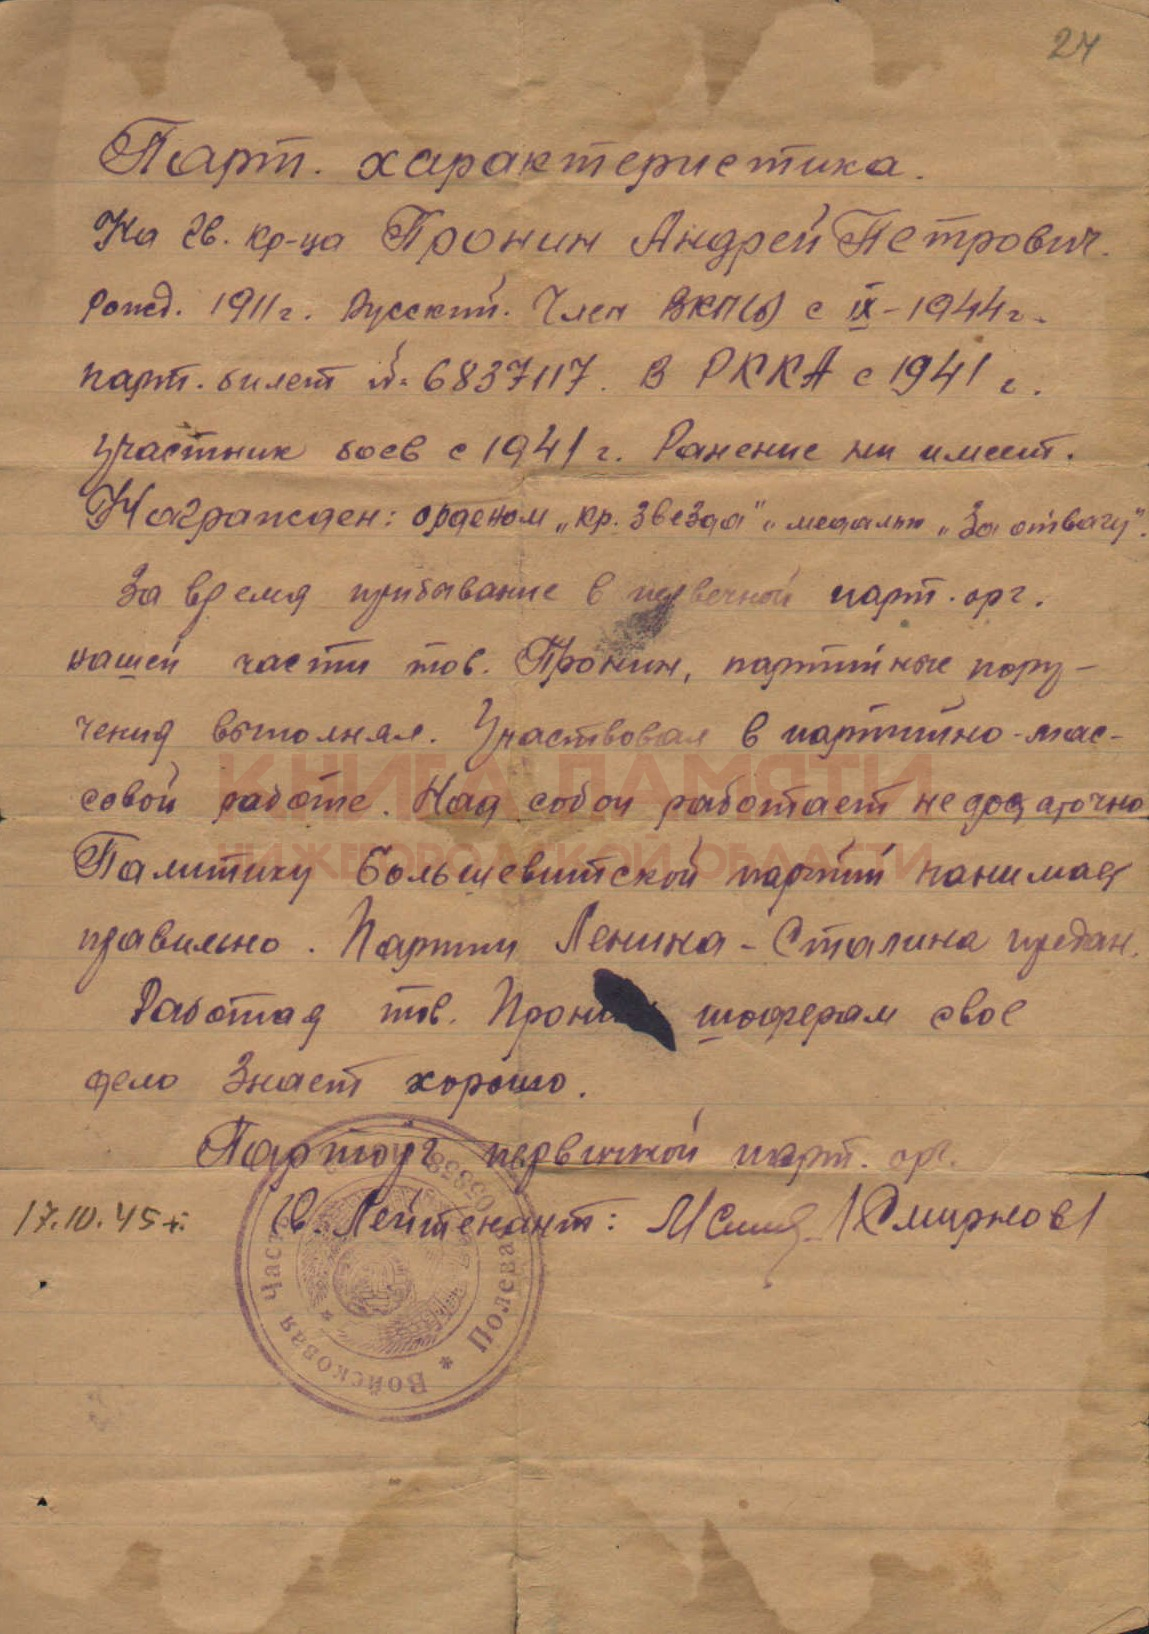 24
Парт. характеристика.
На гв. кр-ца Пронин Андрей Петрович.
рожд. 1911г. Русский. Член ВКП(б) с IX-1944г.
парт. билет №. 6837117. В РККА с 1941 г.
участник боев с 1941 г. Ранение ни имеет.
Награжден: орденом „кр. звезда" и медалью „За отвагу".
За время прибывание в первечной парт. орг.
нашей части тов. Пронин, партийные пору-
чения выполнял. Участвовал в партийно-мас-
совой работе. Над собой работает недостаточно
КНИГА ПАМЯТИ
НИЖЕГОРОДСКОЙ ОБЛАСТИ
Палитику большевитской партий панимает
правильно. Партии Ленина - Сталина предан.
Работая тов. Пронин шоферам свое
дело знает хорошо.
Парторг первичной парт. орг.
17.10.45г. гв. Лейтенант: /Смирнов/
Войсковая Часть * Полевая